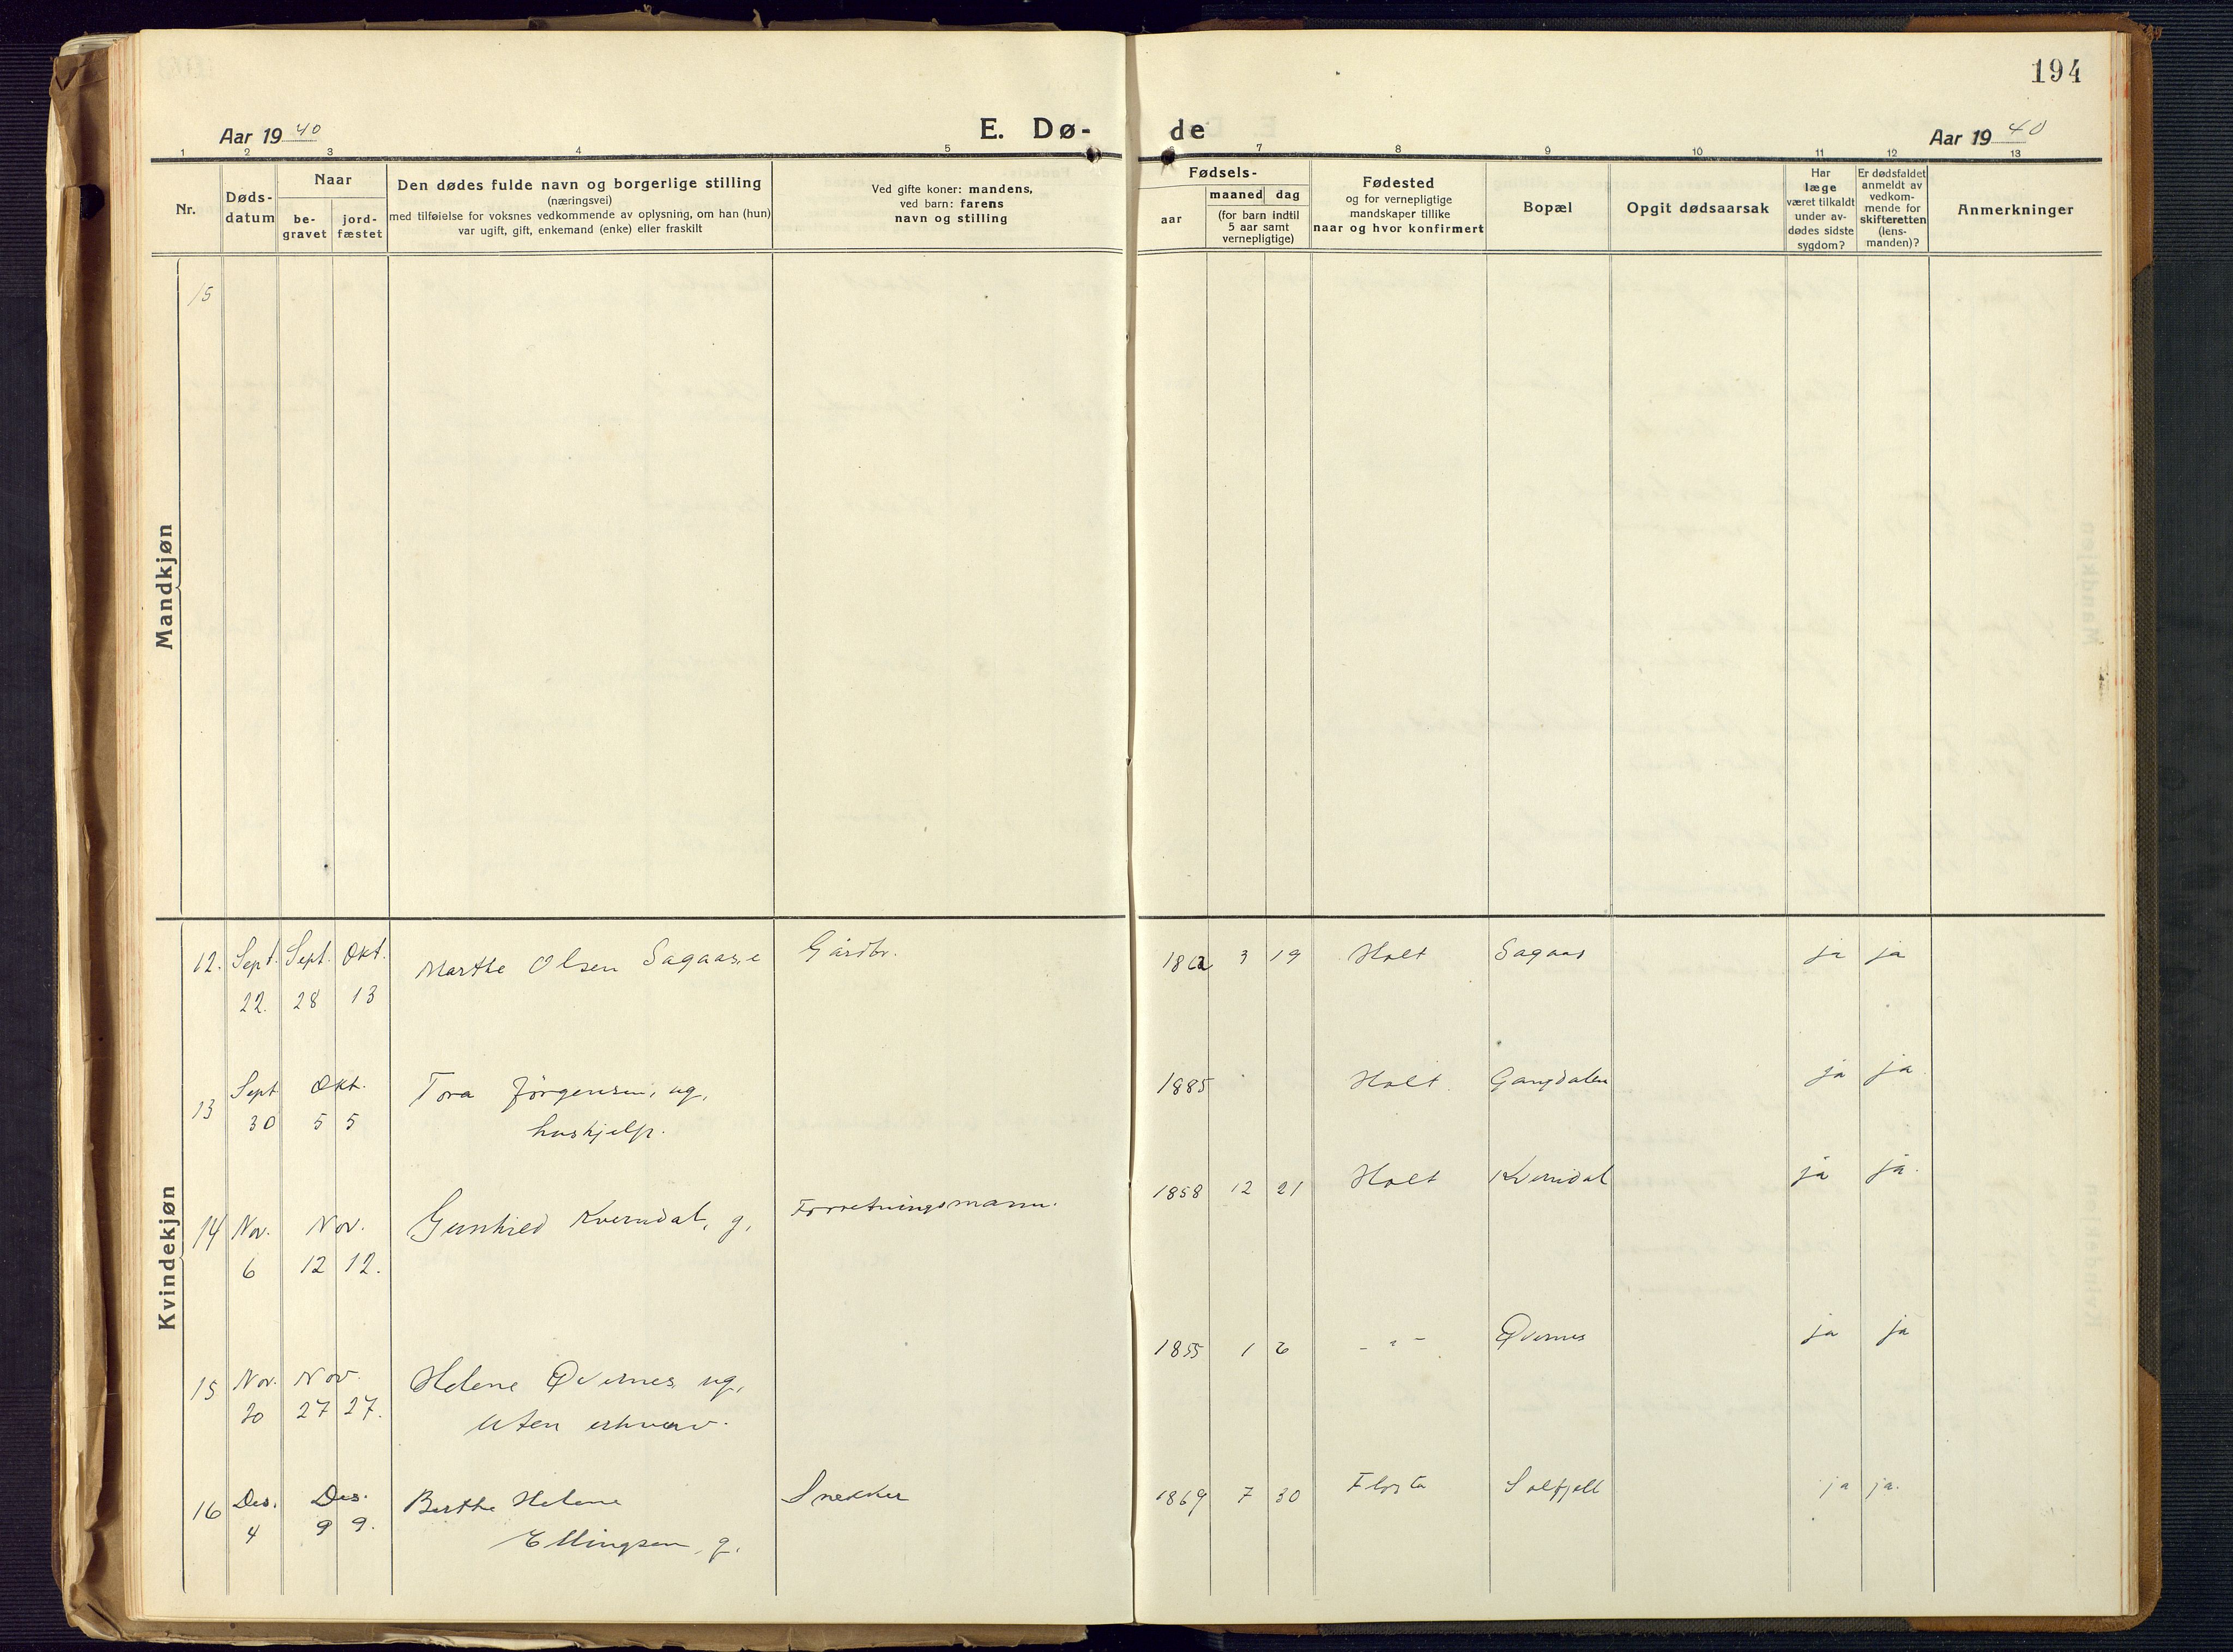 194
Aar 1940
E. Dø-
de
Aar 1940
1 2 3 4 5 6 7 8 9 10 11 12 13
Nr.
Døds-
datum
Naar
be-
gravet
jord-
fæstet
Den dødes fulde navn og borgerlige stilling
(næringsvei)
med tilføielse for voksnes vedkommende av oplysning, om han (hun)
var ugift, gift, enkemand (enke) eller fraskilt
Ved gifte koner: mandens,
ved barn: farens
navn og stilling
Fødsels-
aar
maaned dag
(for barn indtil
5 aar samt
vernepligtige)
Fødested
og for vernepligtige
mandskaper tillike
naar og hvor konfirmert
Bopæl
Opgit dødsaarsak
Har
læge
været tilkaldt
under av-
dødes sidste
sygdom?
Er dødsfaldet
anmeldt av
vedkom-
mende for
skifteretten
(lens-
manden)?
Anmerkninger
Mandkjøn
15
Kvindekjøn
12. Sept. Sept. Okt. Marthe Olsen Sagaas, e Gårdbr. 1862 3 19 Holt Sagaas ja ja
22. 28 13
13 Sept Okt. Tora Jörgensen, ug, 1885 Holt Gangdalen ja ja
30 5 5 hushjelp.
14 Nov. Nov. Gunhild Kverndal, g, Forretningsmann. 1858 12 21 Holt Kverndal ja ja.
6 12 12.
15 Nov. Nov. Helene Qvernes, ug, 1855 1 6 - " - Qvernes ja ja
20 27 27. uten erhverv.
16 Des. Des. Berthe Helene Snekker 1869 7 30 Flosta Solfjell ja ja.
4 9 9. Ellingsen, g.